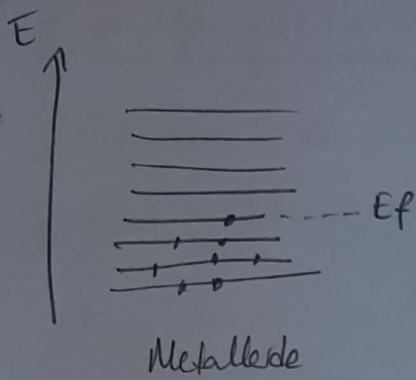 E
Ef
Metallerde